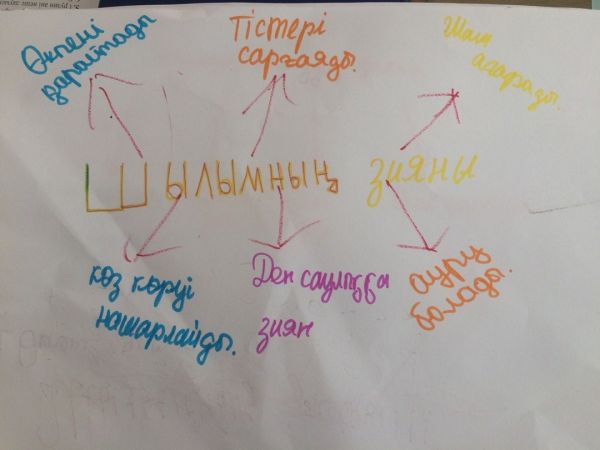 Өкпені
қарайтады
Тістері
сарғаяды.
Шаш
ағарады.
Шылымның зияны
көз көруі
нашарлайды.
Ден саулыққа
зиян
ауру
болады.